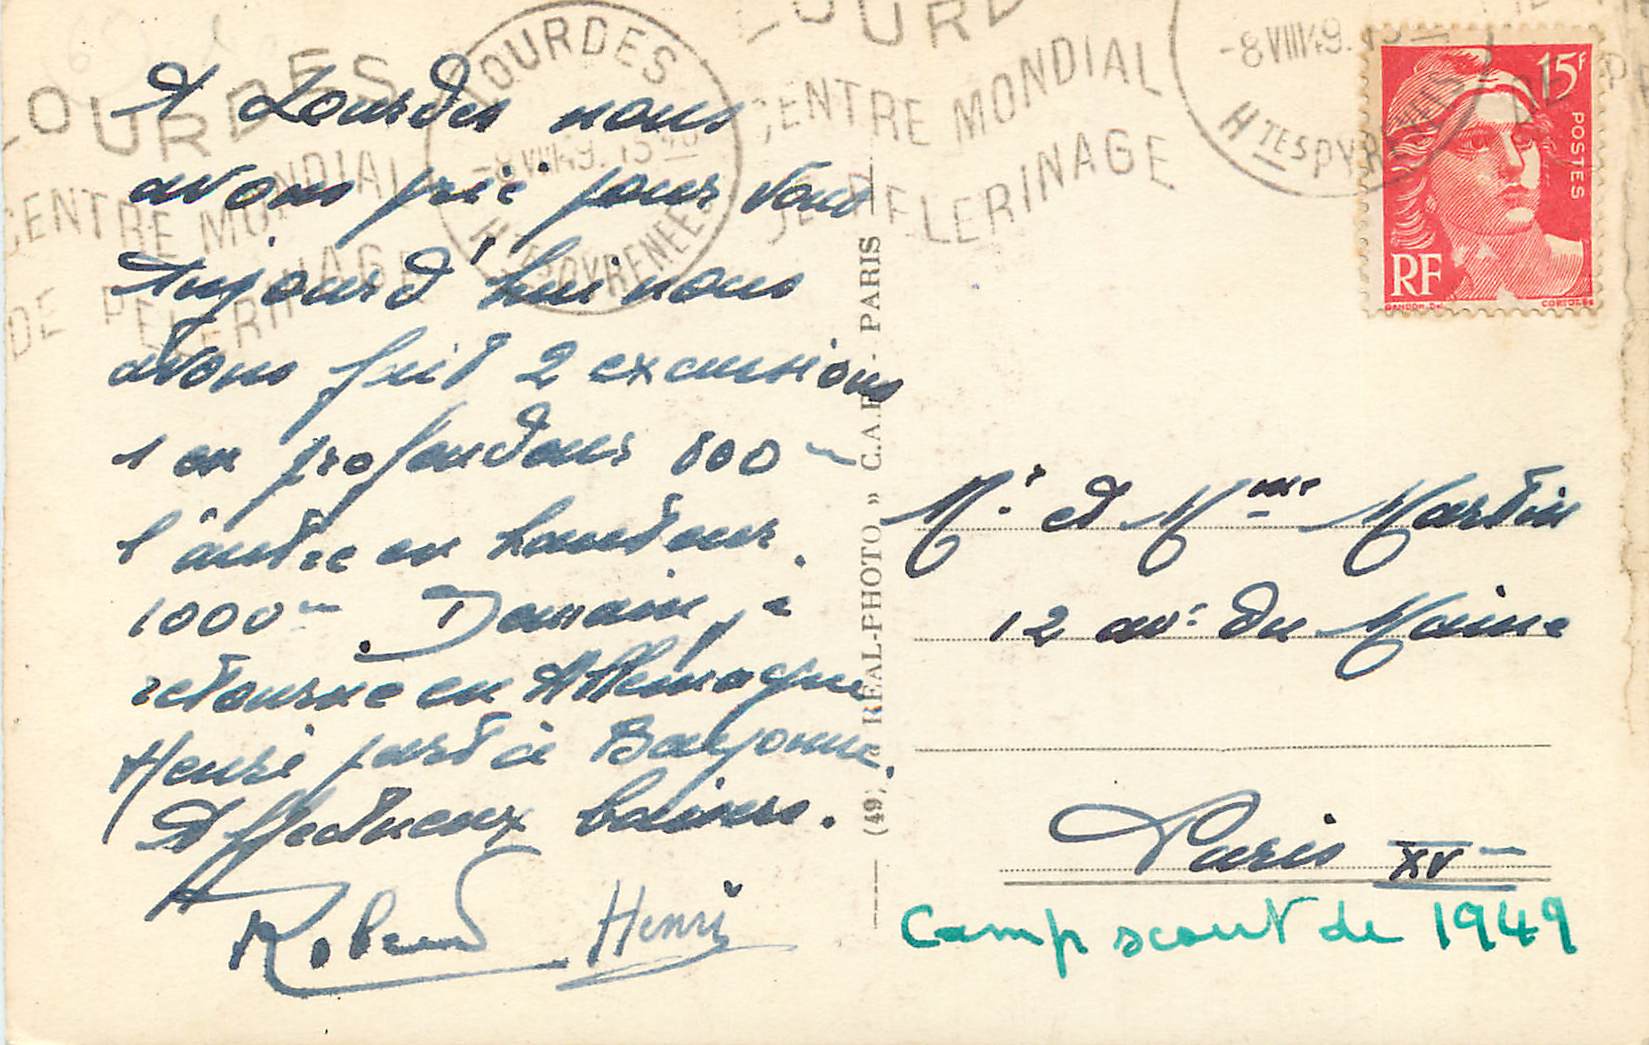 LOURDES
CENTRE MONDIAL
DE PELERINAGE
LOURDES
-8 VIII 49. 15
HTES PYRENEES
LOURDES
CENTRE MONDIAL
DE PELERINAGE
-8 VIII 49. 15
HTES PYRENEES
15F
POSTES
RF
GANDON
CORTOT
A Lourdes nous
avons prié pour vous
Aujourd'hui nous
avons fait 2 excursions
1 en profondeur 800m
l'autre en hauteur.
1000m. Demain, je
retourne en Allemagne
Henri part à Bayonne.
Affectueux baisers.
Robert Henri
REAL-PHOTO » C.A.P. - PARIS
Mr et Mme Martin
12 av. du Maine
Paris XVme
Camp scout de 1949